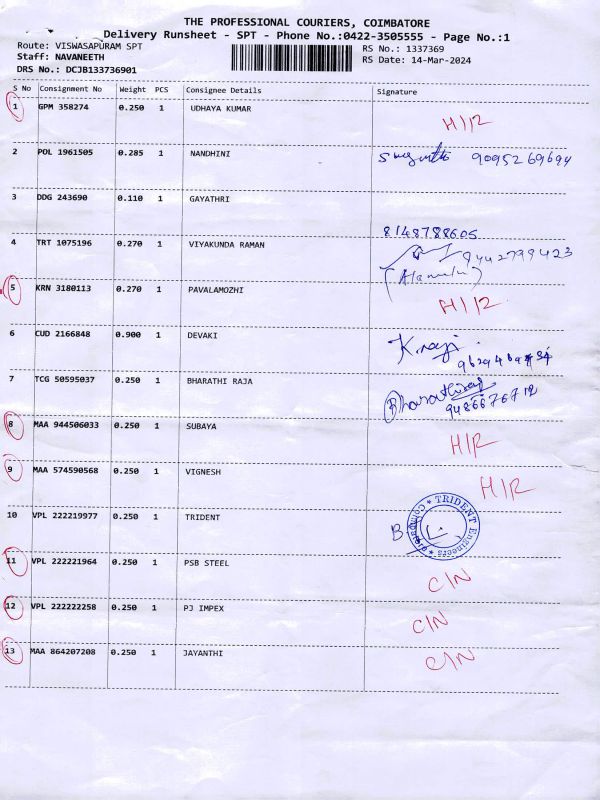 THE PROFESSIONAL COURIERS, COIMBATORE
Delivery Runsheet - SPT - Phone No.:0422-3505555 - Page No.:1
Route: VISWASAPURAM SPT RS No.: 1337369
Staff: NAVANEETH RS Date: 14-Mar-2024
DRS No.: DCJB133736901
S No Consignment No Weight PCS Consignee Details Signature
1 GPM 358274 0.250 1 UDHAYA KUMAR H/R
2 POL 1961505 0.285 1 NANDHINI 9095269694
3 DDG 243690 0.110 1 GAYATHRI
8148788605
4 TRT 1075196 0.270 1 VIYAKUNDA RAMAN 9442799423
(Alamelu)
5 KRN 3180113 0.270 1 PAVALAMOZHI H/R
6 CUD 2166848 0.900 1 DEVAKI K.raji
7 TCG 50595037 0.250 1 BHARATHI RAJA Bharathiraj
9486676712
8 MAA 944506033 0.250 1 SUBAYA H/R
9 MAA 574590568 0.250 1 VIGNESH H/R
10 VPL 222219977 0.250 1 TRIDENT B TRIDENT Engineers * Coimbatore *
11 VPL 222221964 0.250 1 PSB STEEL C/N
12 VPL 222222258 0.250 1 PJ IMPEX C/N
13 MAA 864207208 0.250 1 JAYANTHI C/N